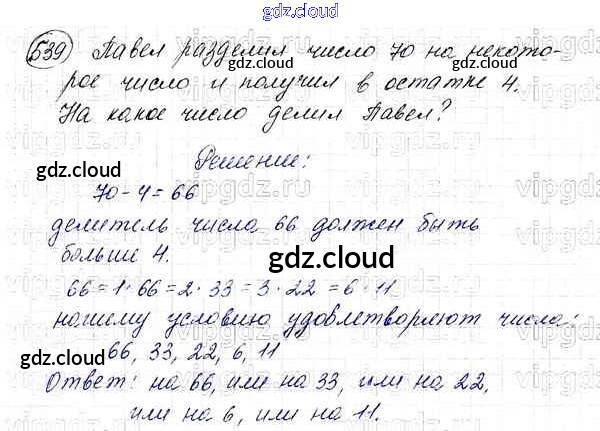 gdz.cloud
539 Павел разделил число 70 на некото-
рое число и получил в остатке 4.
На какое число делил Павел?
gdz.cloud
Решение:
gdz.cloud
70-4=66
делитель числа 66 должен быть
больше 4.
gdz.cloud
66=1·66=2·33=3·22=6·11
нашему условию удовлетворяют числа:
gdz.cloud
66, 33, 22, 6, 11
Ответ: на 66, или на 33, или на 22,
или на 6, или на 11.
gdz.cloud